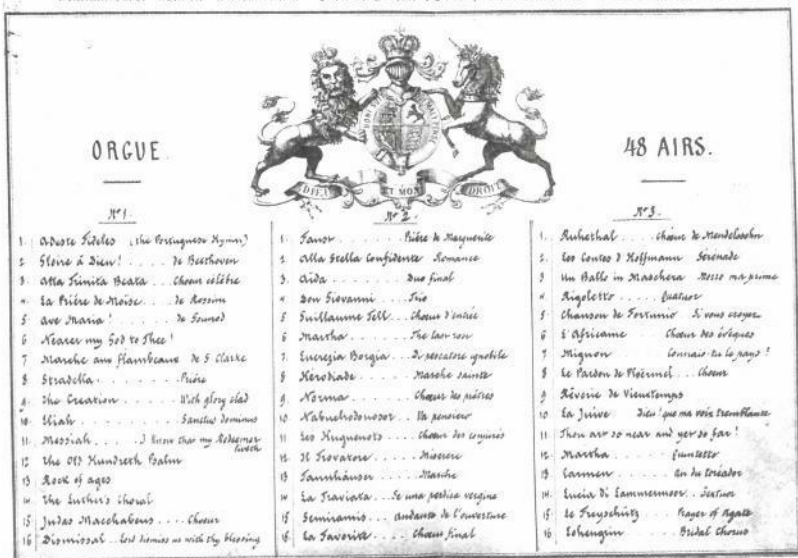 ORGUE.
48 AIRS.
DIEU ET MON DROIT
N° 1.
1. Adeste Fideles (the Portuguese Hymn)
2 Gloire à Dieu! ..... de Beethoven
3. Alla Trinita Beata ... Chœur célèbre
4 La Prière de Moïse ... de Rossini
5 Ave Maria! ..... de Gounod
6 Nearer my God to Thee!
7 Marche aux flambeaux de S Clarke
8 Stradella ....... Prière
9. The Creation ..... With glory clad
10. Eliah ....... Sanctus dominus
11 Messiah ..... I know that my Redeemer liveth
12 The Old Hundreth Psalm
13 Rock of ages
14 The Luther's Choral
15 Judas Macchabeus .... Chœur
16 Dismissal ... Lord dismiss us with thy blessing
N° 2.
1. Faust ...... Prière de Marguerite
2 Alla Stella Confidente Romance
3. Aida ..... Duo final
4 Don Giovanni .... Trio
5 Guillaume Tell .. Chœur d'entrée
6 Martha ..... The last rose
7. Lucrezia Borgia ... Di pescatore ignobile
8 Hérodiade ..... Marche sainte
9 Norma ..... Chœur des prêtres
10 Nabuchodonosor .. Va pensiero
11 Les Huguenots .... Chœur des conjurés
12 Il Trovatore .... Miserere
13 Tannhäuser .... Marche
14 La Traviata .. Se una pudica vergine
15 Semiramis ... andante de l'ouverture
16 La Favorite .... Chœur final
N° 3.
1. Ruhethal ... Chœur de Mendelssohn
2. Les Contes d'Hoffmann Sérénade
3 Un Ballo in Maschera
4 Rigoletto ..... Quatuor
5 Chanson de Fortunio Si vous croyez
6 L'Africaine Chœur des évêques
7 Mignon ..... Connais-tu le pays!
8 Le Pardon de Ploërmel .. Chœur
9 Rêverie de Vieuxtemps
10 La Juive Dieu! que ma voix tremblante
11 Thou art so near and yet so far!
12 Martha ...... Quintetto
13 Carmen ..... Air du toréador
14 Lucia di Lammermoor .. Sextuor
15 Le Freyschütz .... Prayer of Agate
16 Lohengrin ..... Bridal Chorus